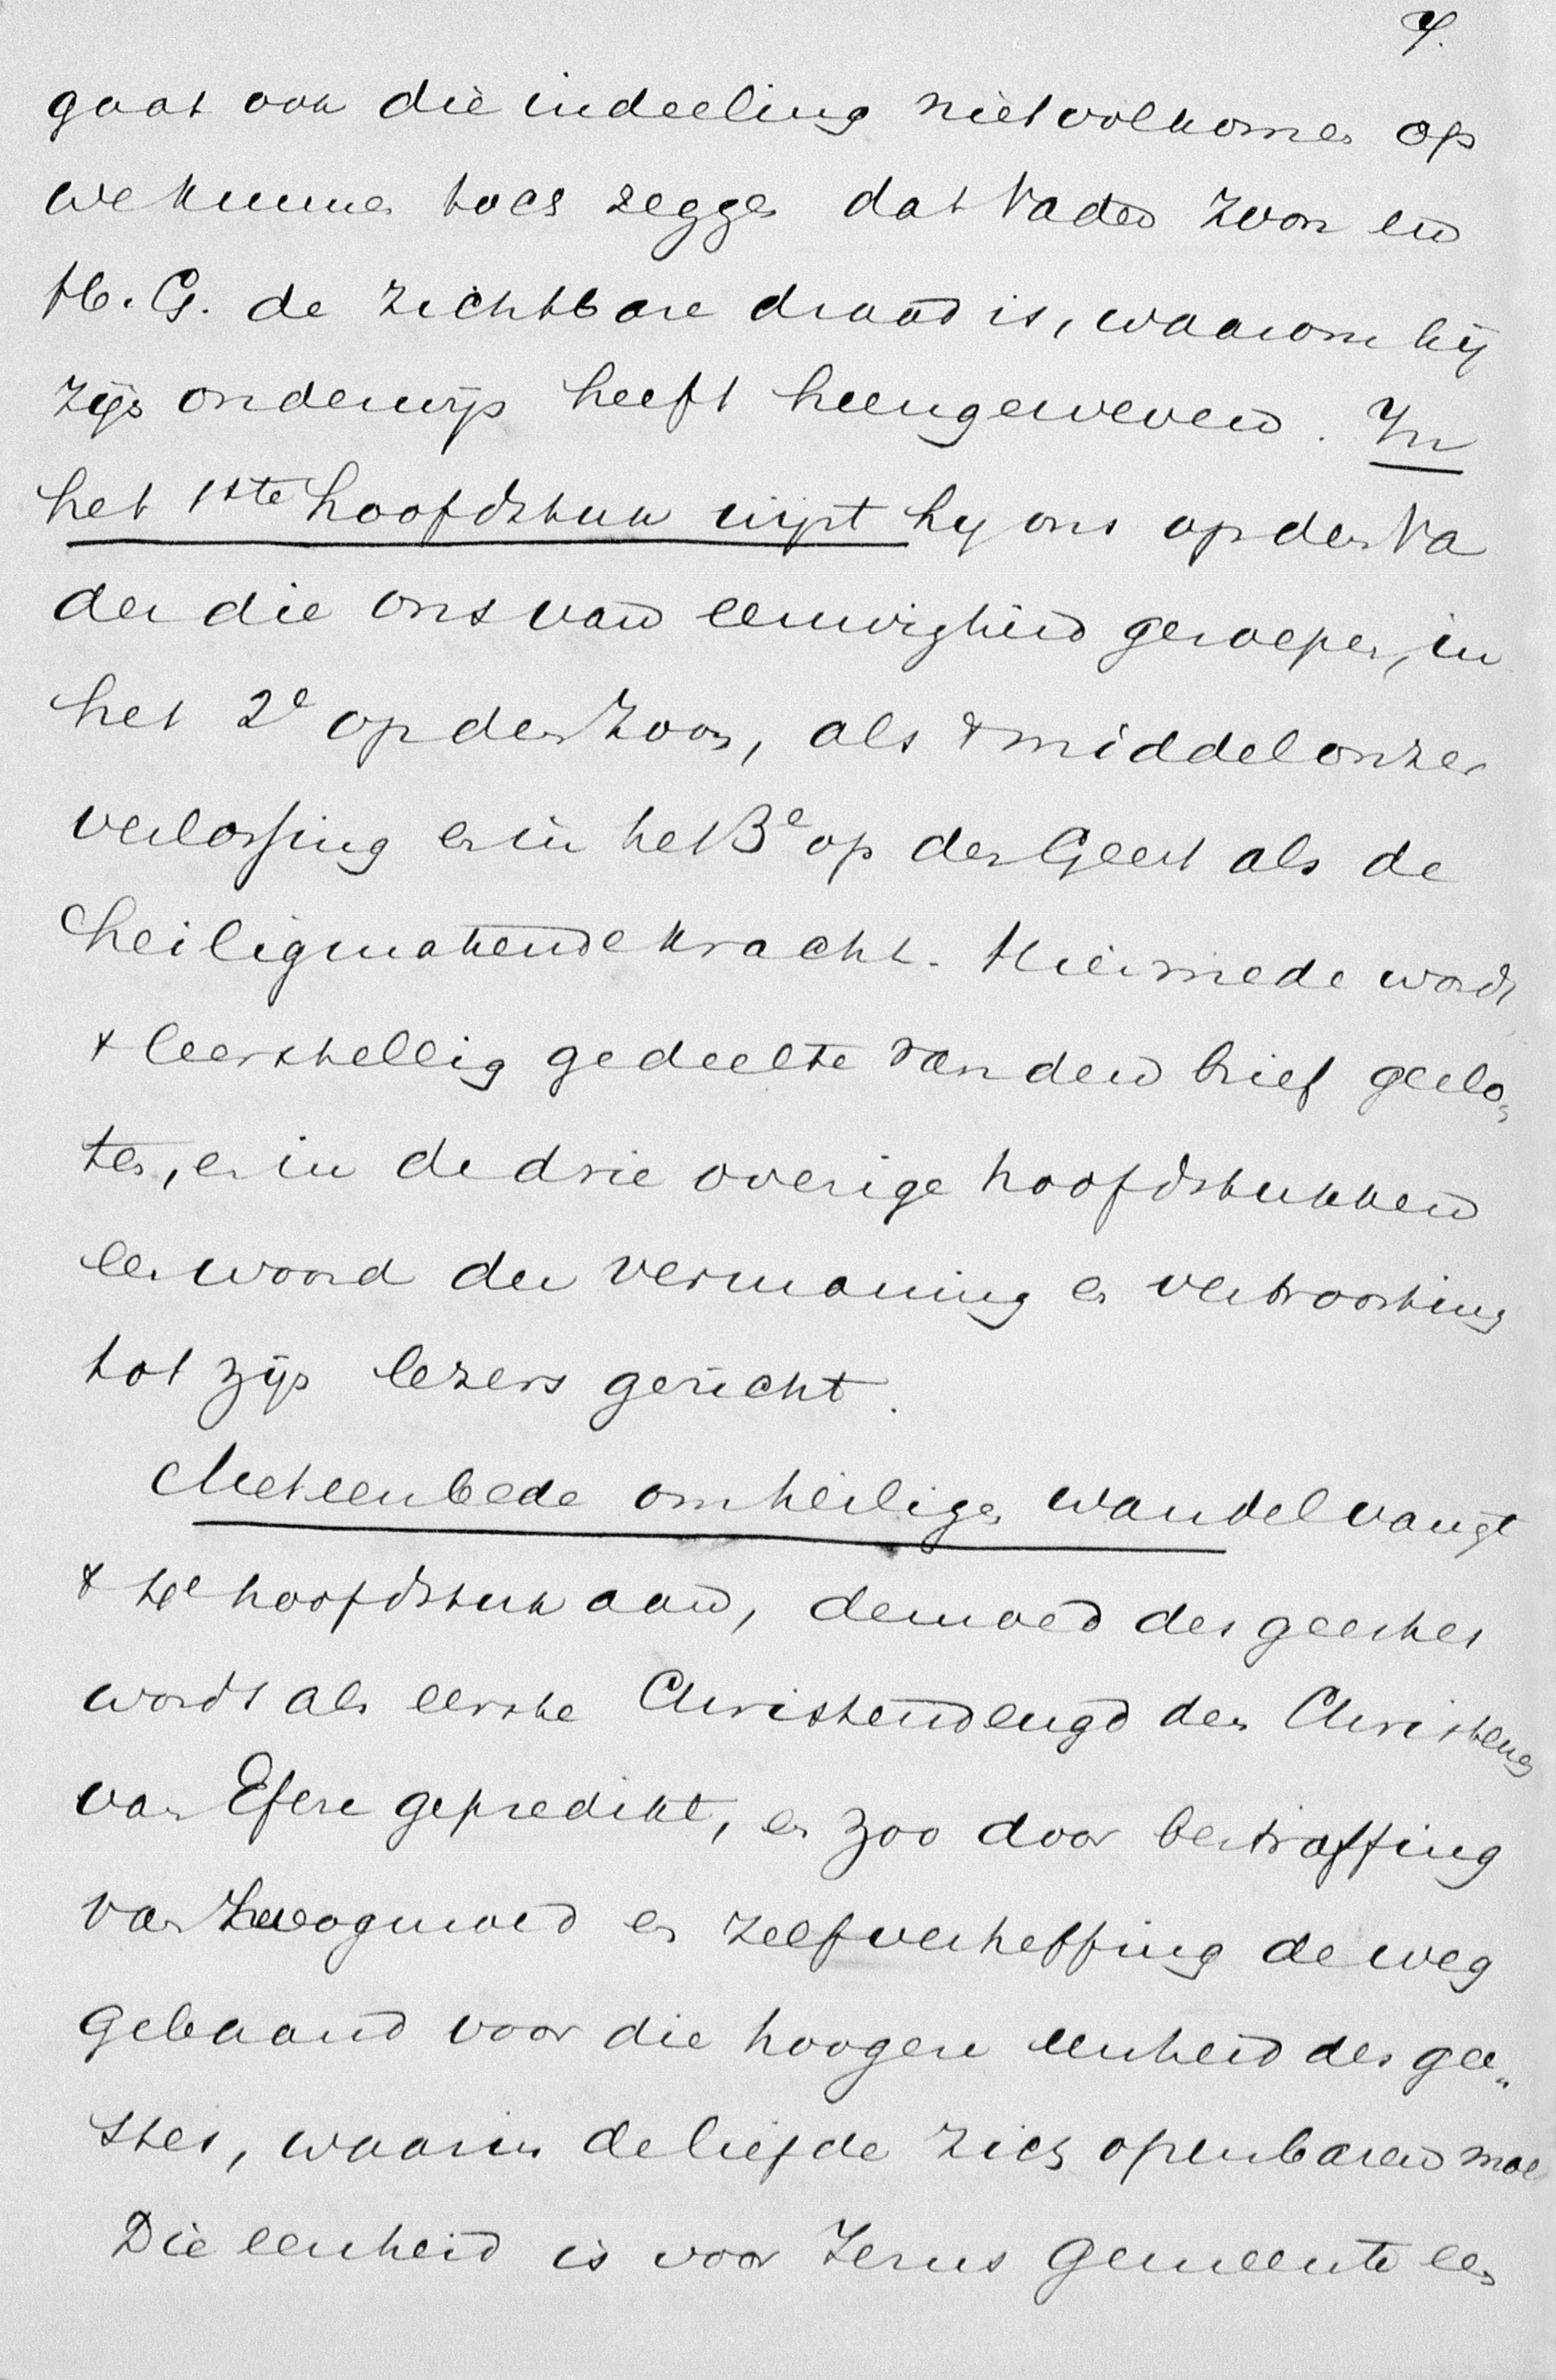 7.
gaat ook die indeeling niet volkomen op
we kunnen toch zeggen dat Vader Zoon en
H. G. de zichtbare draad is, waarom hij
zijn onderwijs heeft heengeweven. In
het 1ste hoofdstuk wijst hij ons op den Va
der die ons van eeuwigheid geroepen, in
het 2e op den Zoon, als 't middel onzer
verlossing en in het 3e op den Geest als de
heiligmakende kracht. Hiermede wordt
't leerstellig gedeelte van den brief geslo„
ten, en in de drie overige hoofdstukken
een woord der vermaning en vertroosting
tot zijn lezers gericht.
Met een bede om heiligen wandel vangt
't 4e hoofdstuk aan, demoed des geestes
wordt als eerste Christendeugd den Christenen
van Efese gepredikt, en zoo door bestraffing
van hoogmoed en zelfverheffing de weg
gebaand voor die hoogere eenheid des gee„
stes, waarin de liefde zich openbaren moe
Die eenheid is voor Jezus gemeente een